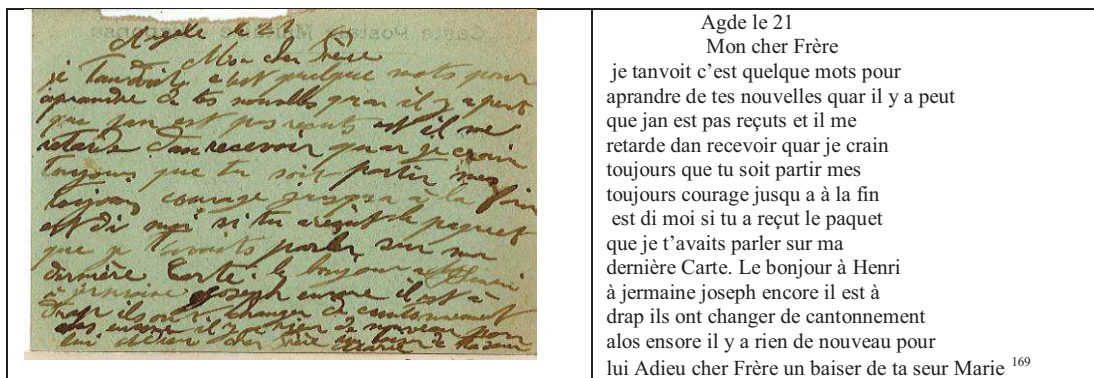 Agde le 21
Mon cher Frère
je Tanvoit c'est quelque mots pour
aprandre de tes nouvelles quar il y a peut
que jan est pas reçuts est il me
retarde dan recevoir quar je crain
toujours que tu soit partir mes
toujours courage jusqu a à la fin
est di moi si tu a reçut le paquet
que je t'avaits parler sur ma
dernière Carte. le bonjour a Henri
a jermaine joseph encore il est à
drap ils ont changer de cantonnement
alos encore il y a rien de nouveau pour
lui adieu cher Frère un baiser de ta seur
Marie
Agde le 21
Mon cher Frère
je tanvoit c’est quelque mots pour
aprandre de tes nouvelles quar il y a peut
que jan est pas reçuts et il me
retarde dan recevoir quar je crain
toujours que tu soit partir mes
toujours courage jusqu a à la fin
est di moi si tu a reçut le paquet
que je t’avaits parler sur ma
dernière Carte. Le bonjour à Henri
à jermaine joseph encore il est à
drap ils ont changer de cantonnement
alos ensore il y a rien de nouveau pour
lui Adieu cher Frère un baiser de ta seur Marie 169